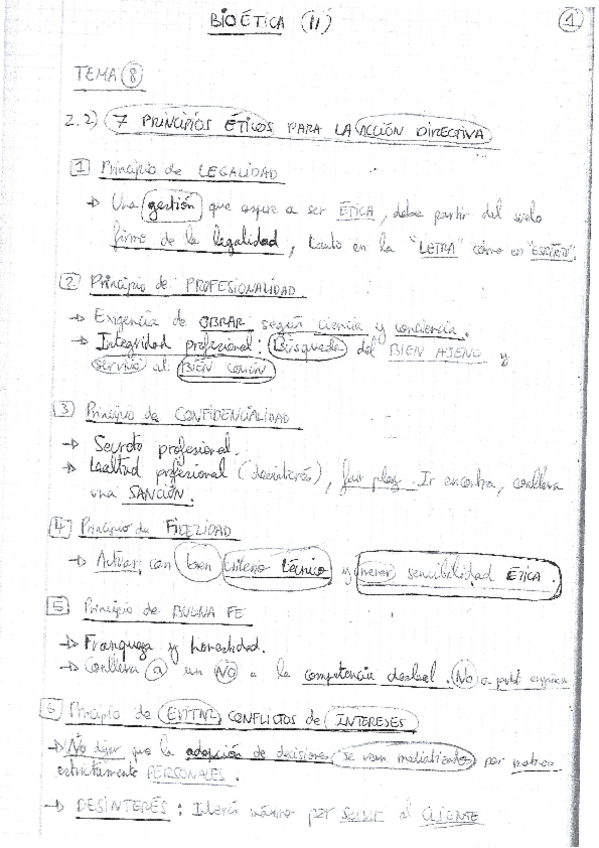 BIOÉTICA (II)
1
TEMA 8
2.2) 7 PRINCIPIOS ÉTICOS PARA LA ACCIÓN DIRECTIVA
1 Principio de LEGALIDAD
→ Una gestión que aspire a ser ÉTICA, debe partir del suelo
firme de la legalidad, tanto en la "LETRA" como en "ESPÍRITU".
2 Principio de PROFESIONALIDAD
→ Exigencia de OBRAR según ciencia y conciencia.
→ Integridad profesional: Búsqueda del BIEN AJENO y
servicio al BIEN COMÚN
3 Principio de CONFIDENCIALIDAD
→ Secreto profesional.
→ Lealtad profesional (desinterés), fair play. Ir encontra, conlleva
una SANCIÓN.
4 Principio de FIDELIDAD
→ Actuar con buen criterio técnico y mayor sensibilidad ÉTICA.
5 Principio de BUENA FE
→ Franqueza y honestidad.
→ Conlleva a un NO a la competencia desleal. No a
6 Principio de EVITAR CONFLICTOS de INTERESES
→ No dejar que la adopción de decisiones se vean mediatizados por
estrictamente PERSONALES.
→ DESINTERÉS: Interés máximo por servir al CLIENTE